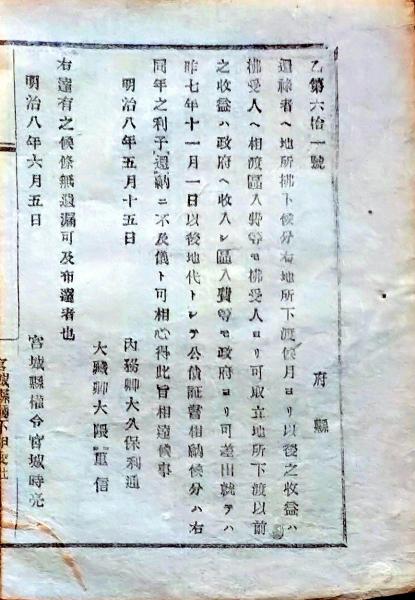 乙第六拾一號
府縣
還祿者ヘ地所拂下候分右地所下渡候月ヨリ以後之收益ハ
拂受人ヘ相渡區入費等モ拂受人ヨリ可取立地所下渡以前
之收益ハ政府ヘ收入シ區入費等モ政府ヨリ可差出就テハ
昨七年十一月一日以後地代トシテ公債証書相納候分ハ右
同年之利子還納ニ不及儀ト可相心得此旨相達候事
明治八年五月十五日
內務卿大久保利通
大藏卿大隈重信
右達有之候條無遺漏可及布達者也
明治八年六月五日
宮城縣權令宮城時亮
宮城縣